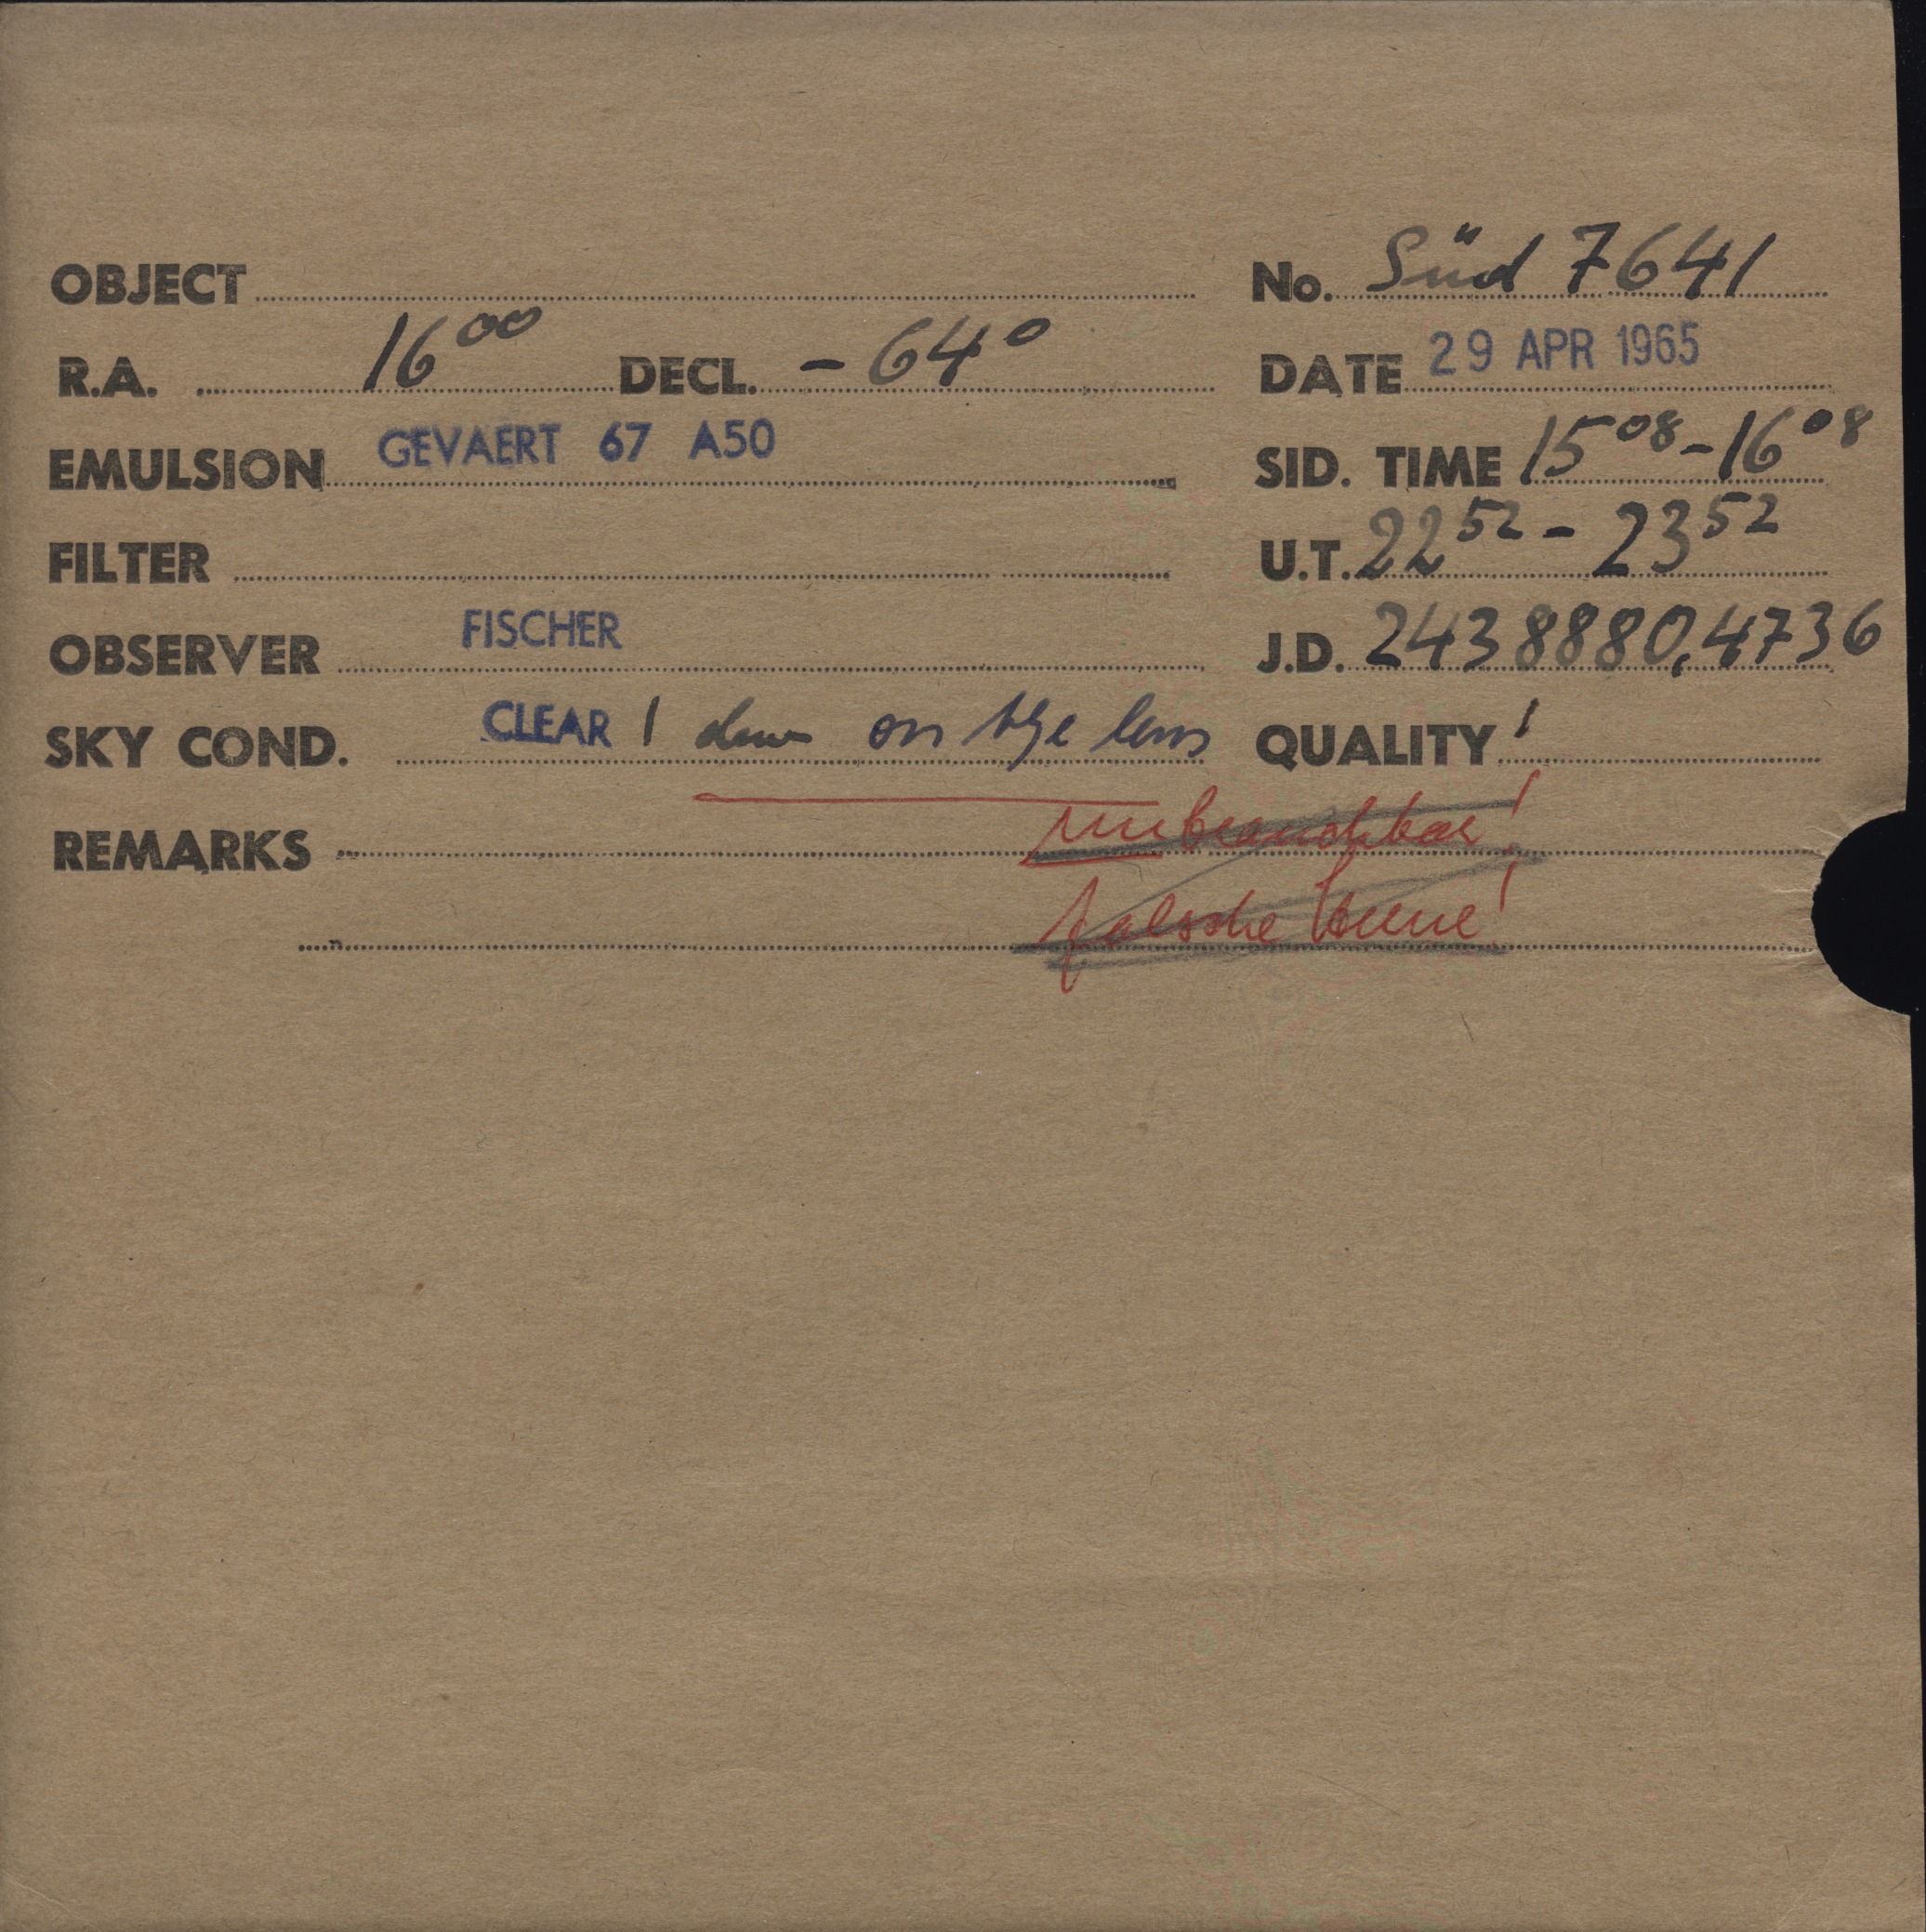 OBJECT No. Süd 7641
R.A. 16 00 DECL. - 64° DATE 29 APR 1965
EMULSION GEVAERT 67 A50 SID. TIME 15 08 - 16 08
FILTER U.T. 22 52 - 23 52
OBSERVER FISCHER J.D. 2438880,4736
SKY COND. CLEAR 1 dew on the lens QUALITY 1
REMARKS unbrauchbar!
falsche